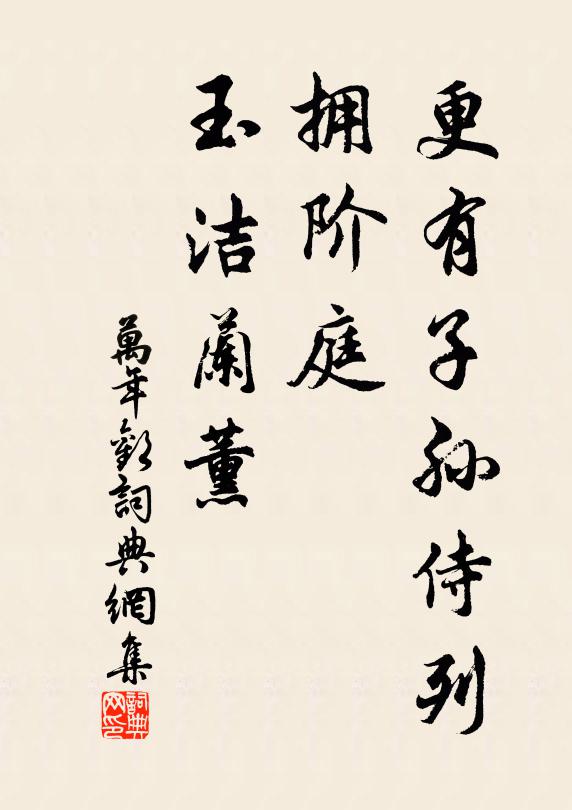 更有子孙侍列
拥阶庭
玉洁蘭薰
萬年歡詞典網集
詞典网印